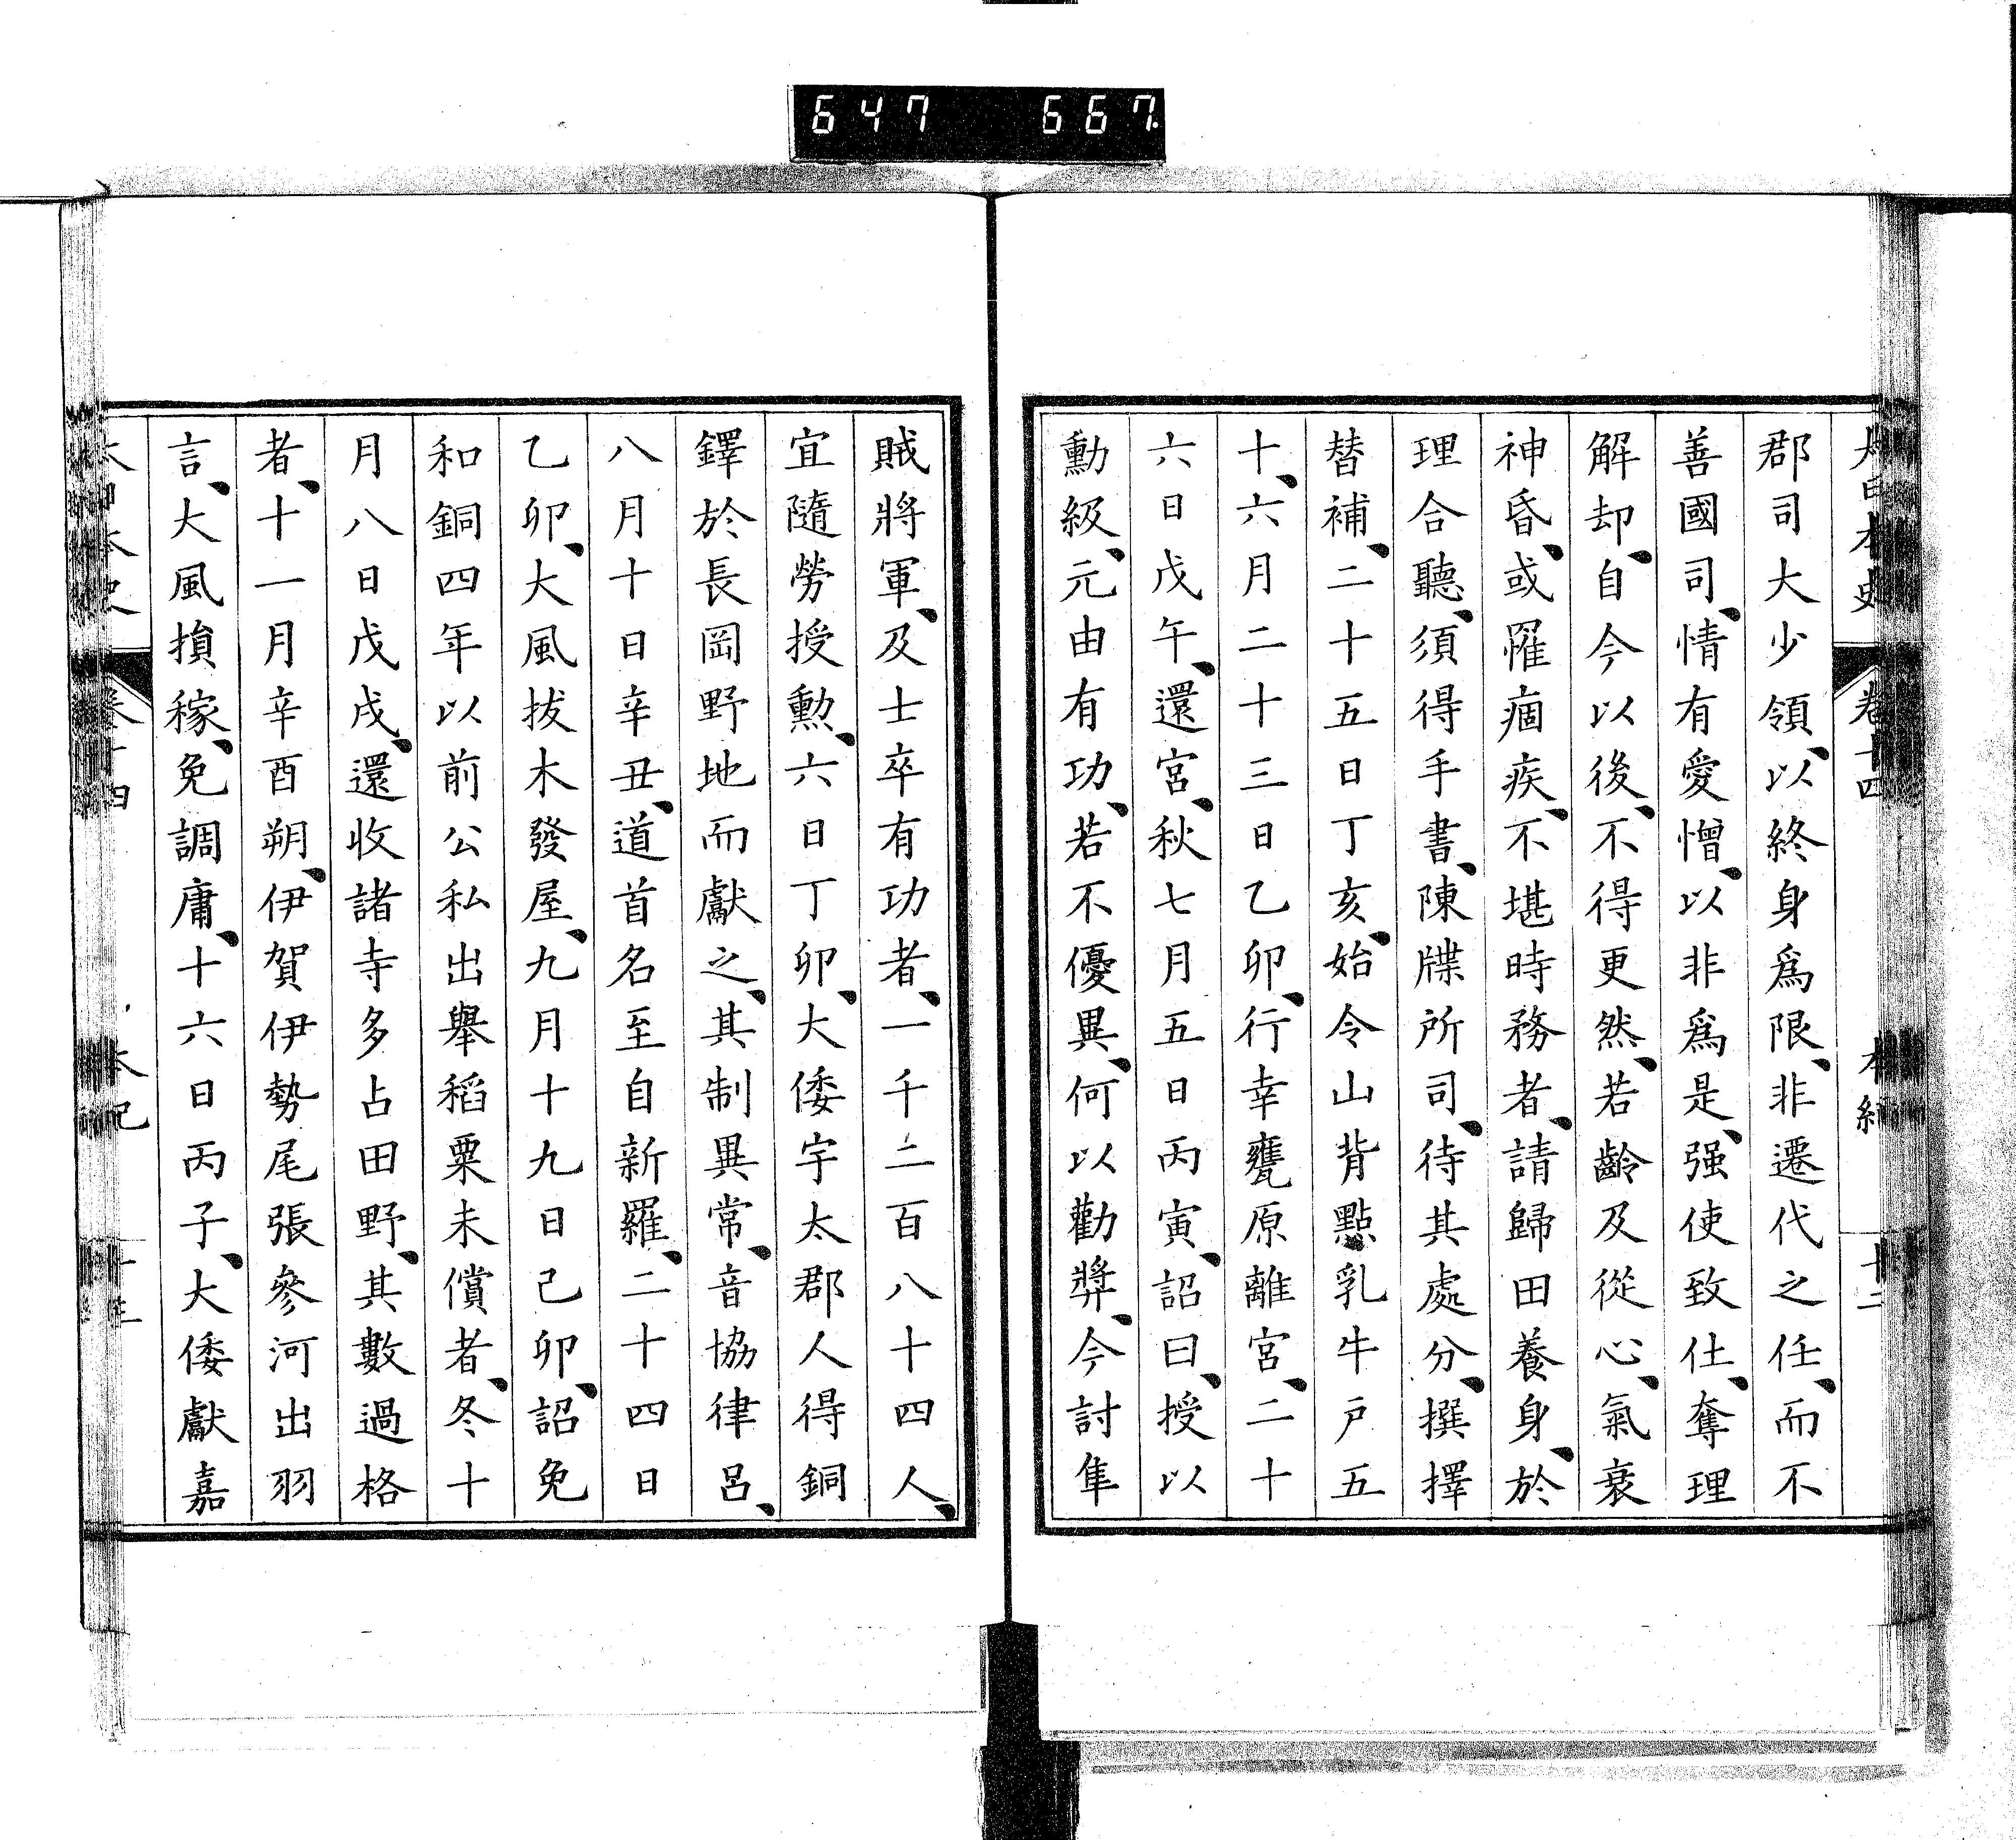 647 667.
大日本史 卷十四 本紀 十二
郡司大少領、以終身爲限、非遷代之任、而不
善國司、情有愛憎、以非爲是、强使致仕、奪理
解却、自今以後、不得更然、若齡及從心、氣衰
神昏、或罹痼疾、不堪時務者、請歸田養身、於
理合聽、須得手書、陳牒所司、待其處分、撰擇
替補、二十五日丁亥、始令山背點乳牛戶五
十、六月二十三日乙卯、行幸甕原離宮、二十
六日戊午、還宮、秋七月五日丙寅、詔曰、授以
勳級、元由有功、若不優異、何以勸奬、今討隼
賊將軍、及士卒有功者、一千二百八十四人、
宜隨勞授勳、六日丁卯、大倭宇太郡人得銅
鐸於長岡野地而獻之、其制異常、音協律呂、
八月十日辛丑、道首名至自新羅、二十四日
乙卯、大風拔木發屋、九月十九日己卯、詔免
和銅四年以前公私出舉稻粟未償者、冬十
月八日戊戌、還收諸寺多占田野、其數過格
者、十一月辛酉朔、伊賀伊勢尾張參河出羽
言、大風損稼、免調庸、十六日丙子、大倭獻嘉